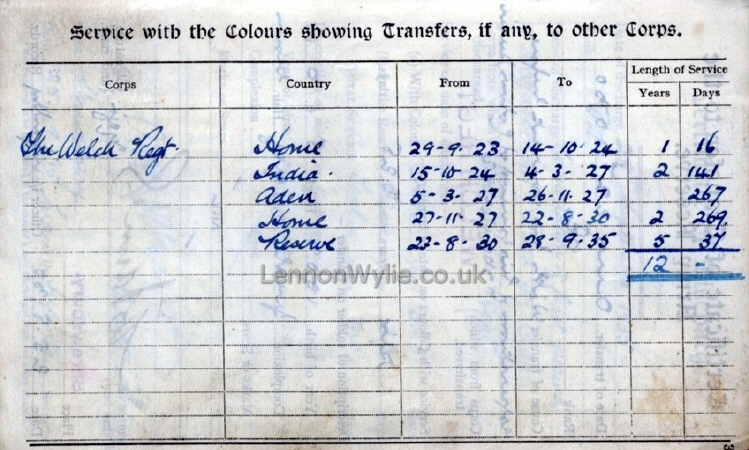 Service with the Colours showing Transfers, if any, to other Corps.
Corps Country From To Length of Service
Years Days
The Welch Regt. Home 29-9-23 14-10-24 1 16
India. 15-10-24 4-3-27 2 141
Aden 5-3-27 26-11-27 267
Home 27-11-27 22-8-30 2 269
Reserve 23-8-30 28-9-35 5 37
12 -
LennonWylie.co.uk
3